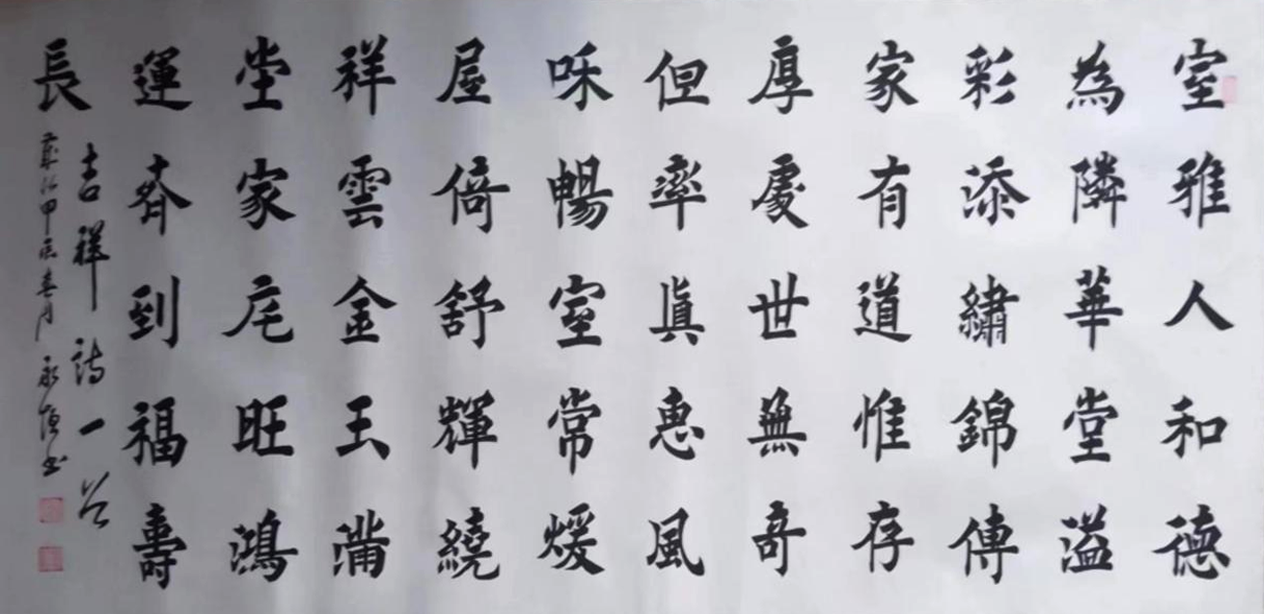 室雅人和德
為隣華堂溢
彩添繡錦傳
家有道惟存
厚處世無奇
但率眞惠風
咊暢室常煖
屋倚舒輝繞
祥雲金玉滿
堂家宅旺鴻
運齊到福壽
長
吉祥詩一首
歲次甲辰春月 永書